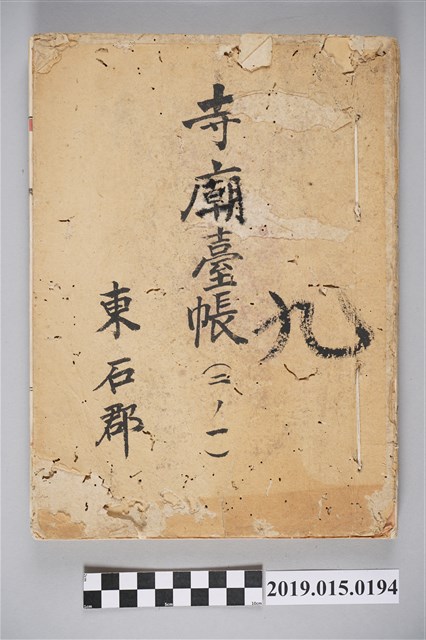 九
寺廟臺帳(二ノ一)
東石郡
2019.015.0194